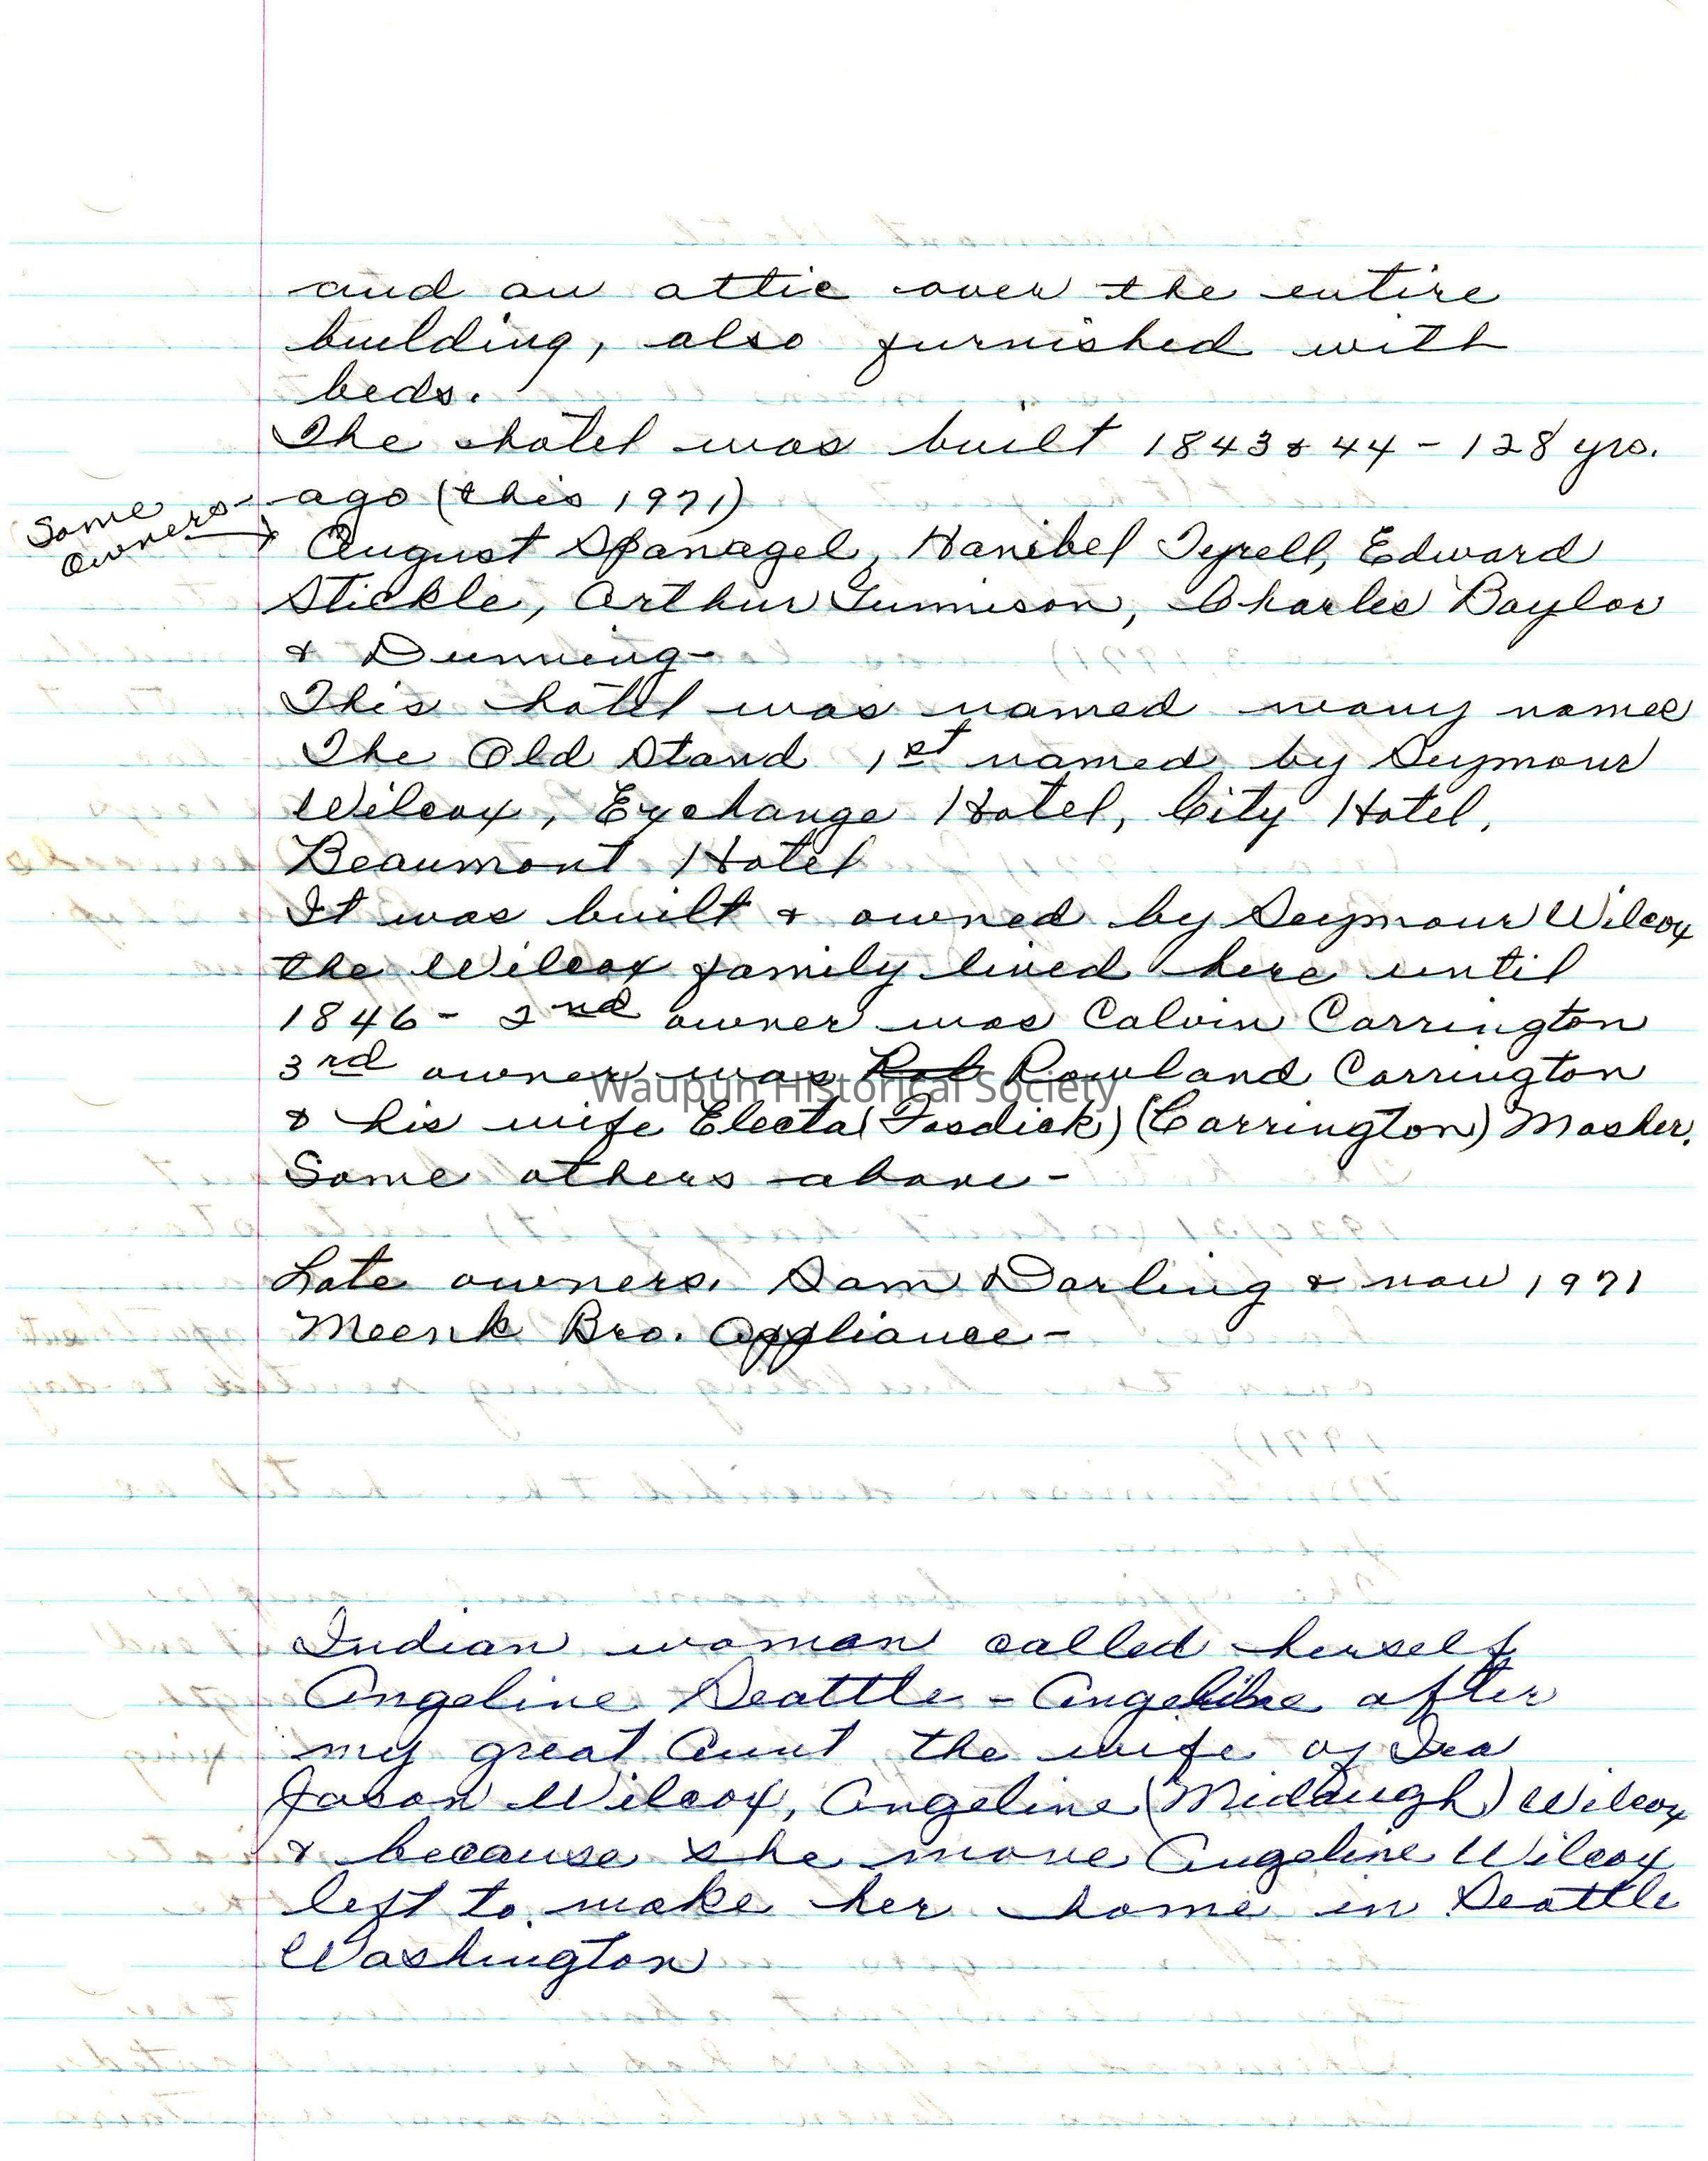 and an attic over the entire
building, also furnished with
beds.
The hotel was built 1843 & 44 - 128 yrs.
ago (this 1971)
Some
owners
August Spanagel, Hanibel Tyrell, Edward
Stickle, Arthur Gunnison, Charles Baylor
& Dunning-
This hotel was named many names
The Old Stand 1st named by Seymour
Wilcox, Exchange Hotel, City Hotel,
Beaumont Hotel
It was built & owned by Seymour Wilcox
the Wilcox family lived here until
1846 - 2nd owner was Calvin Carrington
3rd owner was Rol Rowland Carrington
& his wife Electa (Fosdick) (Carrington) Mosher.
Some others above -
Late owners. Sam Darling & now 1971
Meenk Bro. Appliance -
Indian woman called herself
Angeline Seattle - Angeline after
my great Aunt, the wife of Ira
Jason Wilcox, Angeline (Midaugh) Wilcox
& because she move Angeline Wilcox
left to make her home in Seattle
Washington
Waupun Historical Society